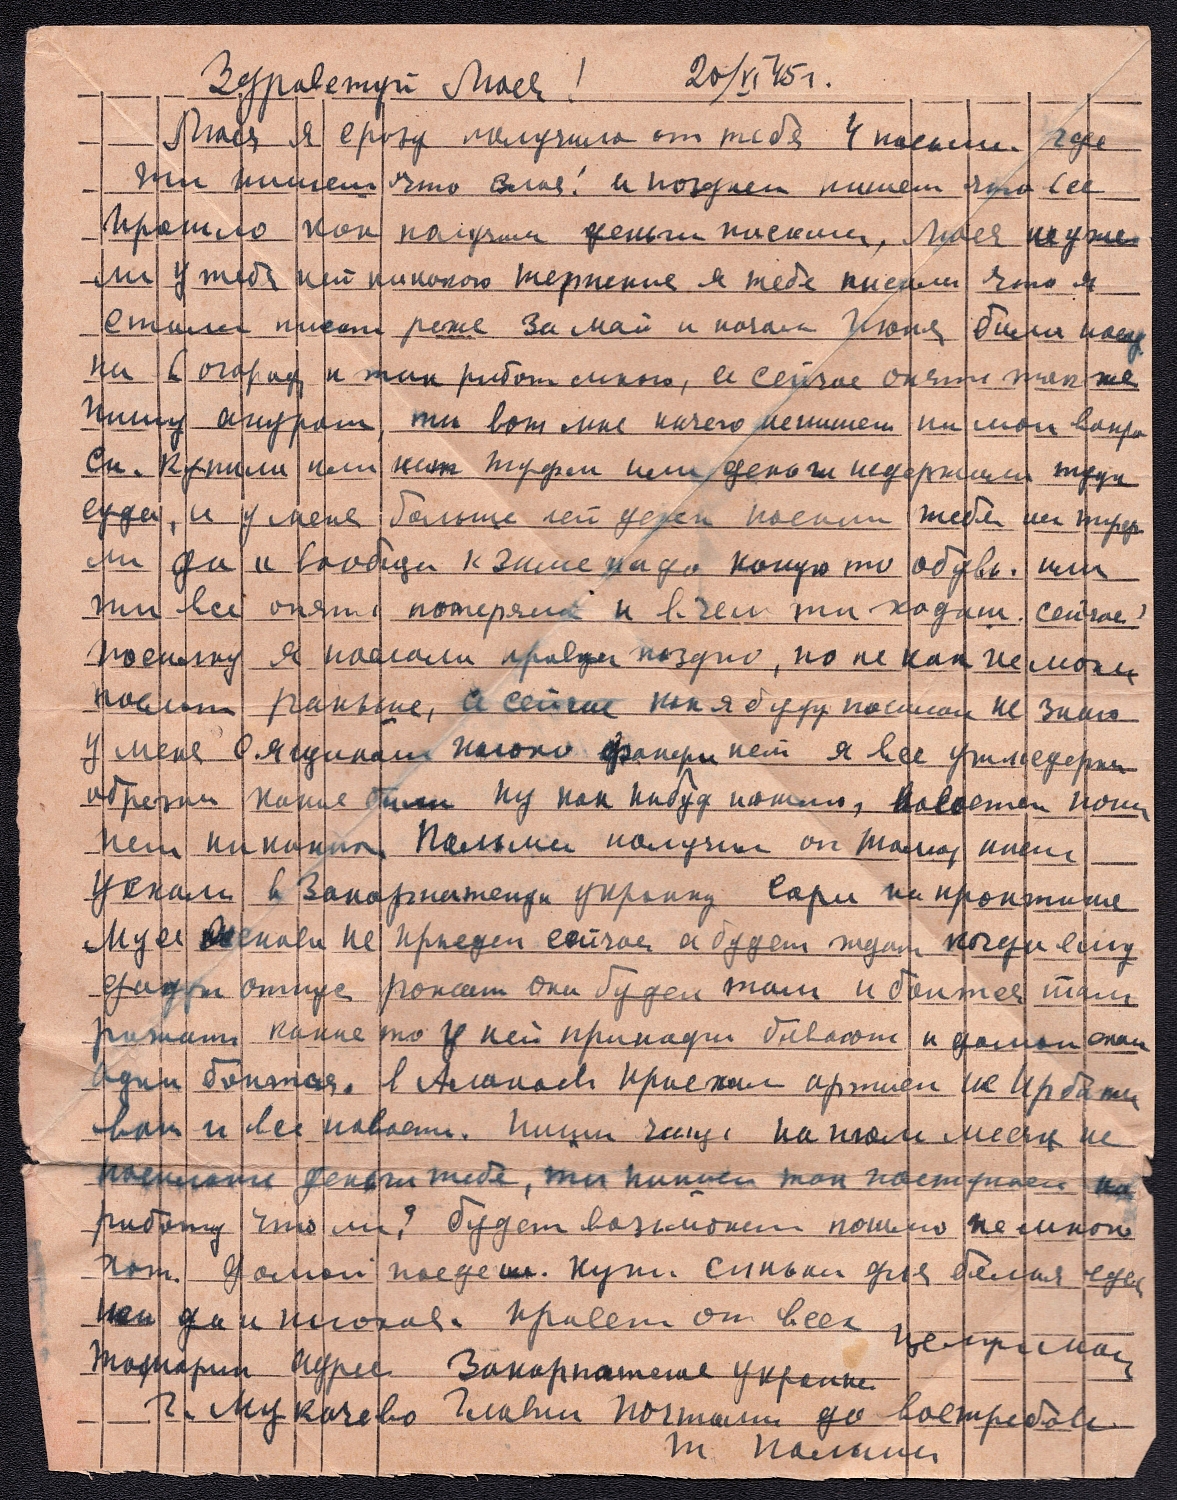 Здравствуй Люся! 20/VI 45 г.
Люся я сразу получила от тебя 4 письма где
ти пишеш что злая! и поздней пишеш что все
прошло как получила деньги писала, Люся неуже
ли у тебя ней никакого терпения я тебе писала что я
стала писать реже за май и начала Июня били
на в огород и так работ много, а сейчас опять так же
пишу ти вот мне ничего непишеш на мои вопро
си. купила или нет туфли или деньги
суда, и у меня больше ней тебе
ли да и вообще к зиме надо какую то обувь. или
ти всё опять потеряла и в чем ти ходиш. сейчас?
посилку я послала правда поздно, но не как не могла
послать раньше, а сейчас как я буду посилать не знаю
у меня фанери ней я все
обрезки какие били ну как нибуд пошлю, новостей пока
ней никаких. Польма получила от письмо
уехали в Закарпатскую украину
Муся не приедет сейчас а будет ждать когда ему
дадут отпуск рожать она будет там и боится там
рожать какие то у ней припадки бивают и домой ехат
одна боится. в приехал артист из Ирбита
вот и все новости. пиши чаще на июль месяц не
посилать деньги тебе, ти пишеш так поступаеш на
работу что ли? будет возможност пошлю немного
хот. домой поедеш. купи синьки для белья здес
ней да и плохая. привет от всех
целую мать
Тамарин адрес Закарпатская украина
г. Мукачево Главни почтамт до востребов.
Т Польма